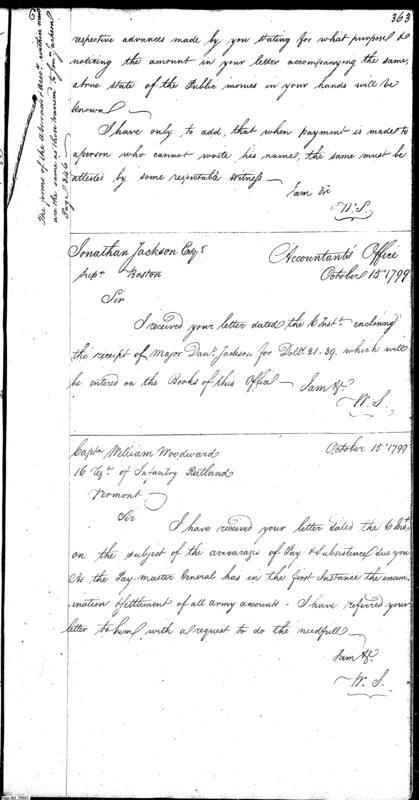 363
respective advances made by you stating for what purpose &
noticing the amount in your letter accompanying the same,
a true state of the Public monies in your hands will be
known
I have only to add, that when payment is made to
a person who cannot write his name, the same must be
attested by some respectable Witness
I am &c
W. S.
The forms of the Abstract & Acco.ts within
are the same as those transm.d to
Page 346
Jonathan Jackson Esq.r
Accountants Office
Boston
October 15 1799
Sir
I received your letter dated the 6 Inst. enclosing
the receipt of Major Dan.l Jackson for Doll.s 21.39. which will
be entered on the Books of this Office — I am &c
W. S.
Capt.n William Woodward
October 15 1799
16 Reg.t of Infantry Rutland
Vermont
Sir
I have received your letter dated the 6 Inst.
on the subject of the arrearages of Pay & Subsistence due you
As the Pay-master General has in the first Instance the exam-
ination & settlement of all army accounts - I have referred your
letter to him, with a request to do the needfull
I am &c.
W. S.